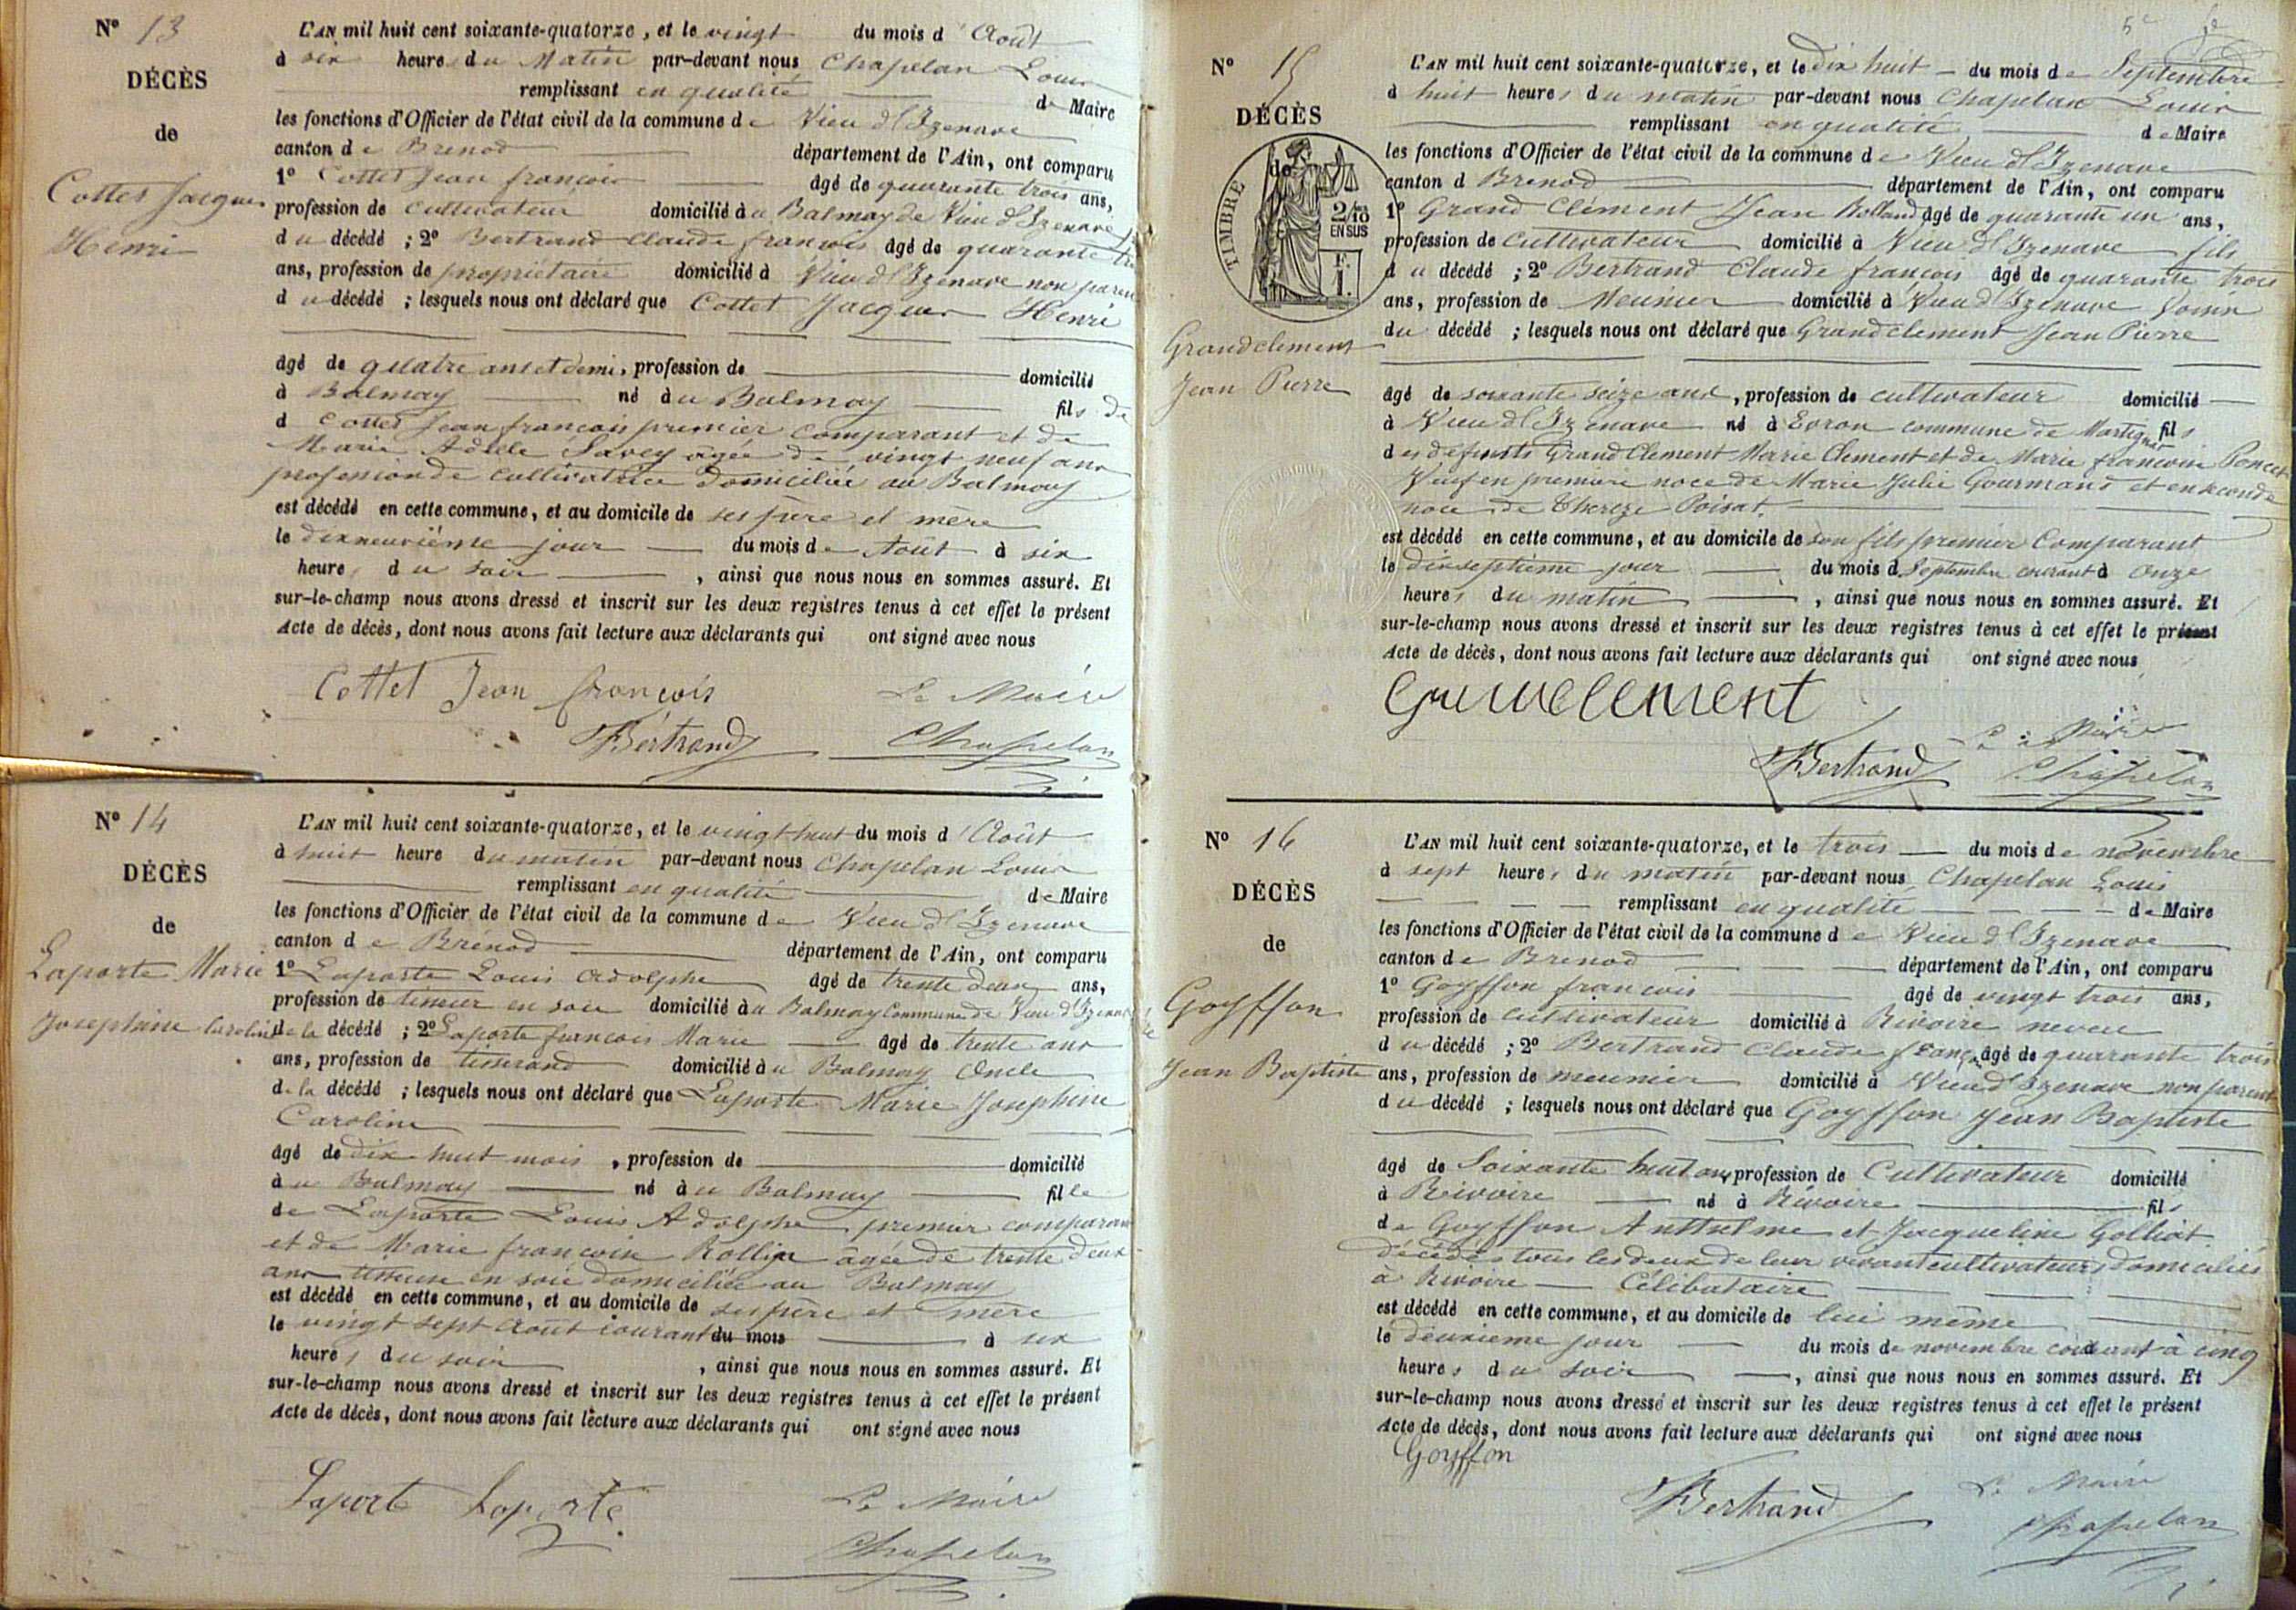 N° 13
DÉCÈS
de
Cottet Jacques
Henri
L'AN mil huit cent soixante-quatorze, et le vingt du mois d'Août
à six heure du Matin par-devant nous Chapelan Louis
remplissant en qualité de Maire
les fonctions d'Officier de l'état civil de la commune de Vieu d'Izenave
canton de Brenod département de l'Ain, ont comparu
1° Cottet Jean françois âgé de quarante trois ans,
profession de cultivateur domicilié au Balmay de Vieu d'Izenave
du décédé ; 2° Bertrand Claude françois âgé de quarante
ans, profession de propriétaire domicilié à Vieu d'Izenave non parent
du décédé ; lesquels nous ont déclaré que Cottet Jacques Henri
âgé de quatre ans et demi, profession de domicilié
à Balmay né au Balmay fils de
d Cottet Jean françois premier comparant et de
Marie Adèle Savey agée de vingt neuf ans
profession de cultivatrice domiciliée au Balmay
est décédé en cette commune, et au domicile de ses père et mère
le dixneuvième jour du mois de Août à six
heure du soir, ainsi que nous nous en sommes assuré. Et
sur-le-champ nous avons dressé et inscrit sur les deux registres tenus à cet effet le présent
Acte de décès, dont nous avons fait lecture aux déclarants qui ont signé avec nous
Cottet Jean françois Le Maire
Bertrand Chapelan
N° 14
DÉCÈS
de
Laporte Marie
Josephine Caroline
L'AN mil huit cent soixante-quatorze, et le vingt huit du mois d'Août
à huit heure du matin par-devant nous Chapelan Louis
remplissant en qualité de Maire
les fonctions d'Officier de l'état civil de la commune de Vieu d'Izenave
canton de Brénod département de l'Ain, ont comparu
1° Laporte Louis Adolphe âgé de trente deux ans,
profession de tisseur en soie domicilié au Balmay Commune de Vieu d'Izenave
de la décédé ; 2° Laporte françois Marie âgé de trente ans
ans, profession de tisserand domicilié au Balmay Oncle
de la décédé ; lesquels nous ont déclaré que Laporte Marie Josephine
Caroline
âgé de dix huit mois, profession de domicilié
au Balmay né au Balmay fille
de Laporte Louis Adolphe premier comparant
et de Marie françoise Rollin agée de trente deux
ans tisseuse en soie domiciliée au Balmay
est décédé en cette commune, et au domicile de ses père et mère
le vingt sept Août courant du mois à six
heures du soir, ainsi que nous nous en sommes assuré. Et
sur-le-champ nous avons dressé et inscrit sur les deux registres tenus à cet effet le présent
Acte de décès, dont nous avons fait lecture aux déclarants qui ont signé avec nous
Laporte Laporte Le Maire
Chapelan
5e
N° 15
DÉCÈS
de
TIMBRE
2/10
EN SUS
F.
1.
Grandclement
Jean Pierre
L'AN mil huit cent soixante-quatorze, et le dix huit du mois de Septembre
à huit heures du matin par-devant nous Chapelan Louis
remplissant en qualité de Maire
les fonctions d'Officier de l'état civil de la commune de Vieu d'Izenave
canton d Brenod département de l'Ain, ont comparu
1° Grand Clément Jean Rolland âgé de quarante un ans,
profession de Cultivateur domicilié à Vieu d'Izenave fils
du décédé ; 2° Bertrand Claude françois âgé de quarante trois
ans, profession de Meunier domicilié à Vieu d'Izenave Voisin
du décédé ; lesquels nous ont déclaré que Grandclement Jean Pierre
âgé de soixante seize ans, profession de cultivateur domicilié
à Vieu d'Izenave né à Evron commune de Martignat fils
des défunts Grand Clement Marie Clement et de Marie françoise Poncet
Veuf en première noce de Marie Julie Gourmand et en seconde
noce de Thereze Poisat.
est décédé en cette commune, et au domicile de son fils premier Comparant
le dixseptième jour du mois d Septembre courant à Onze
heures du matin, ainsi que nous nous en sommes assuré. Et
sur-le-champ nous avons dressé et inscrit sur les deux registres tenus à cet effet le présent
Acte de décès, dont nous avons fait lecture aux déclarants qui ont signé avec nous
Le Maire
Bertrand Chapelan
N° 16
DÉCÈS
de
Goyffon
Jean Baptiste
L'AN mil huit cent soixante-quatorze, et le trois du mois de novembre
à sept heures du matin par-devant nous Chapelan Louis
remplissant en qualité de Maire
les fonctions d'Officier de l'état civil de la commune de Vieu d'Izenave
canton de Brenod département de l'Ain, ont comparu
1° Goyffon françois âgé de vingt trois ans,
profession de cultivateur domicilié à Rivoire neveu
du décédé ; 2° Bertrand Claude franç. âgé de quarante trois
ans, profession de meunier domicilié à Vieu d'Izenave non parent
du décédé ; lesquels nous ont déclaré que Goyffon Jean Baptiste
âgé de Soixante huit ans, profession de Cultivateur domicilié
à Rivoire né à Rivoire fils
de Goyffon Anthelme et Jacqueline Golliat
décédés tous les deux de leur vivant cultivateurs domiciliés
à Rivoire Célibataire
est décédé en cette commune, et au domicile de lui même
le deuxième jour du mois de novembre courant à cinq
heures du soir, ainsi que nous nous en sommes assuré. Et
sur-le-champ nous avons dressé et inscrit sur les deux registres tenus à cet effet le présent
Acte de décès, dont nous avons fait lecture aux déclarants qui ont signé avec nous
Goyffon
Bertrand Le Maire
Chapelan